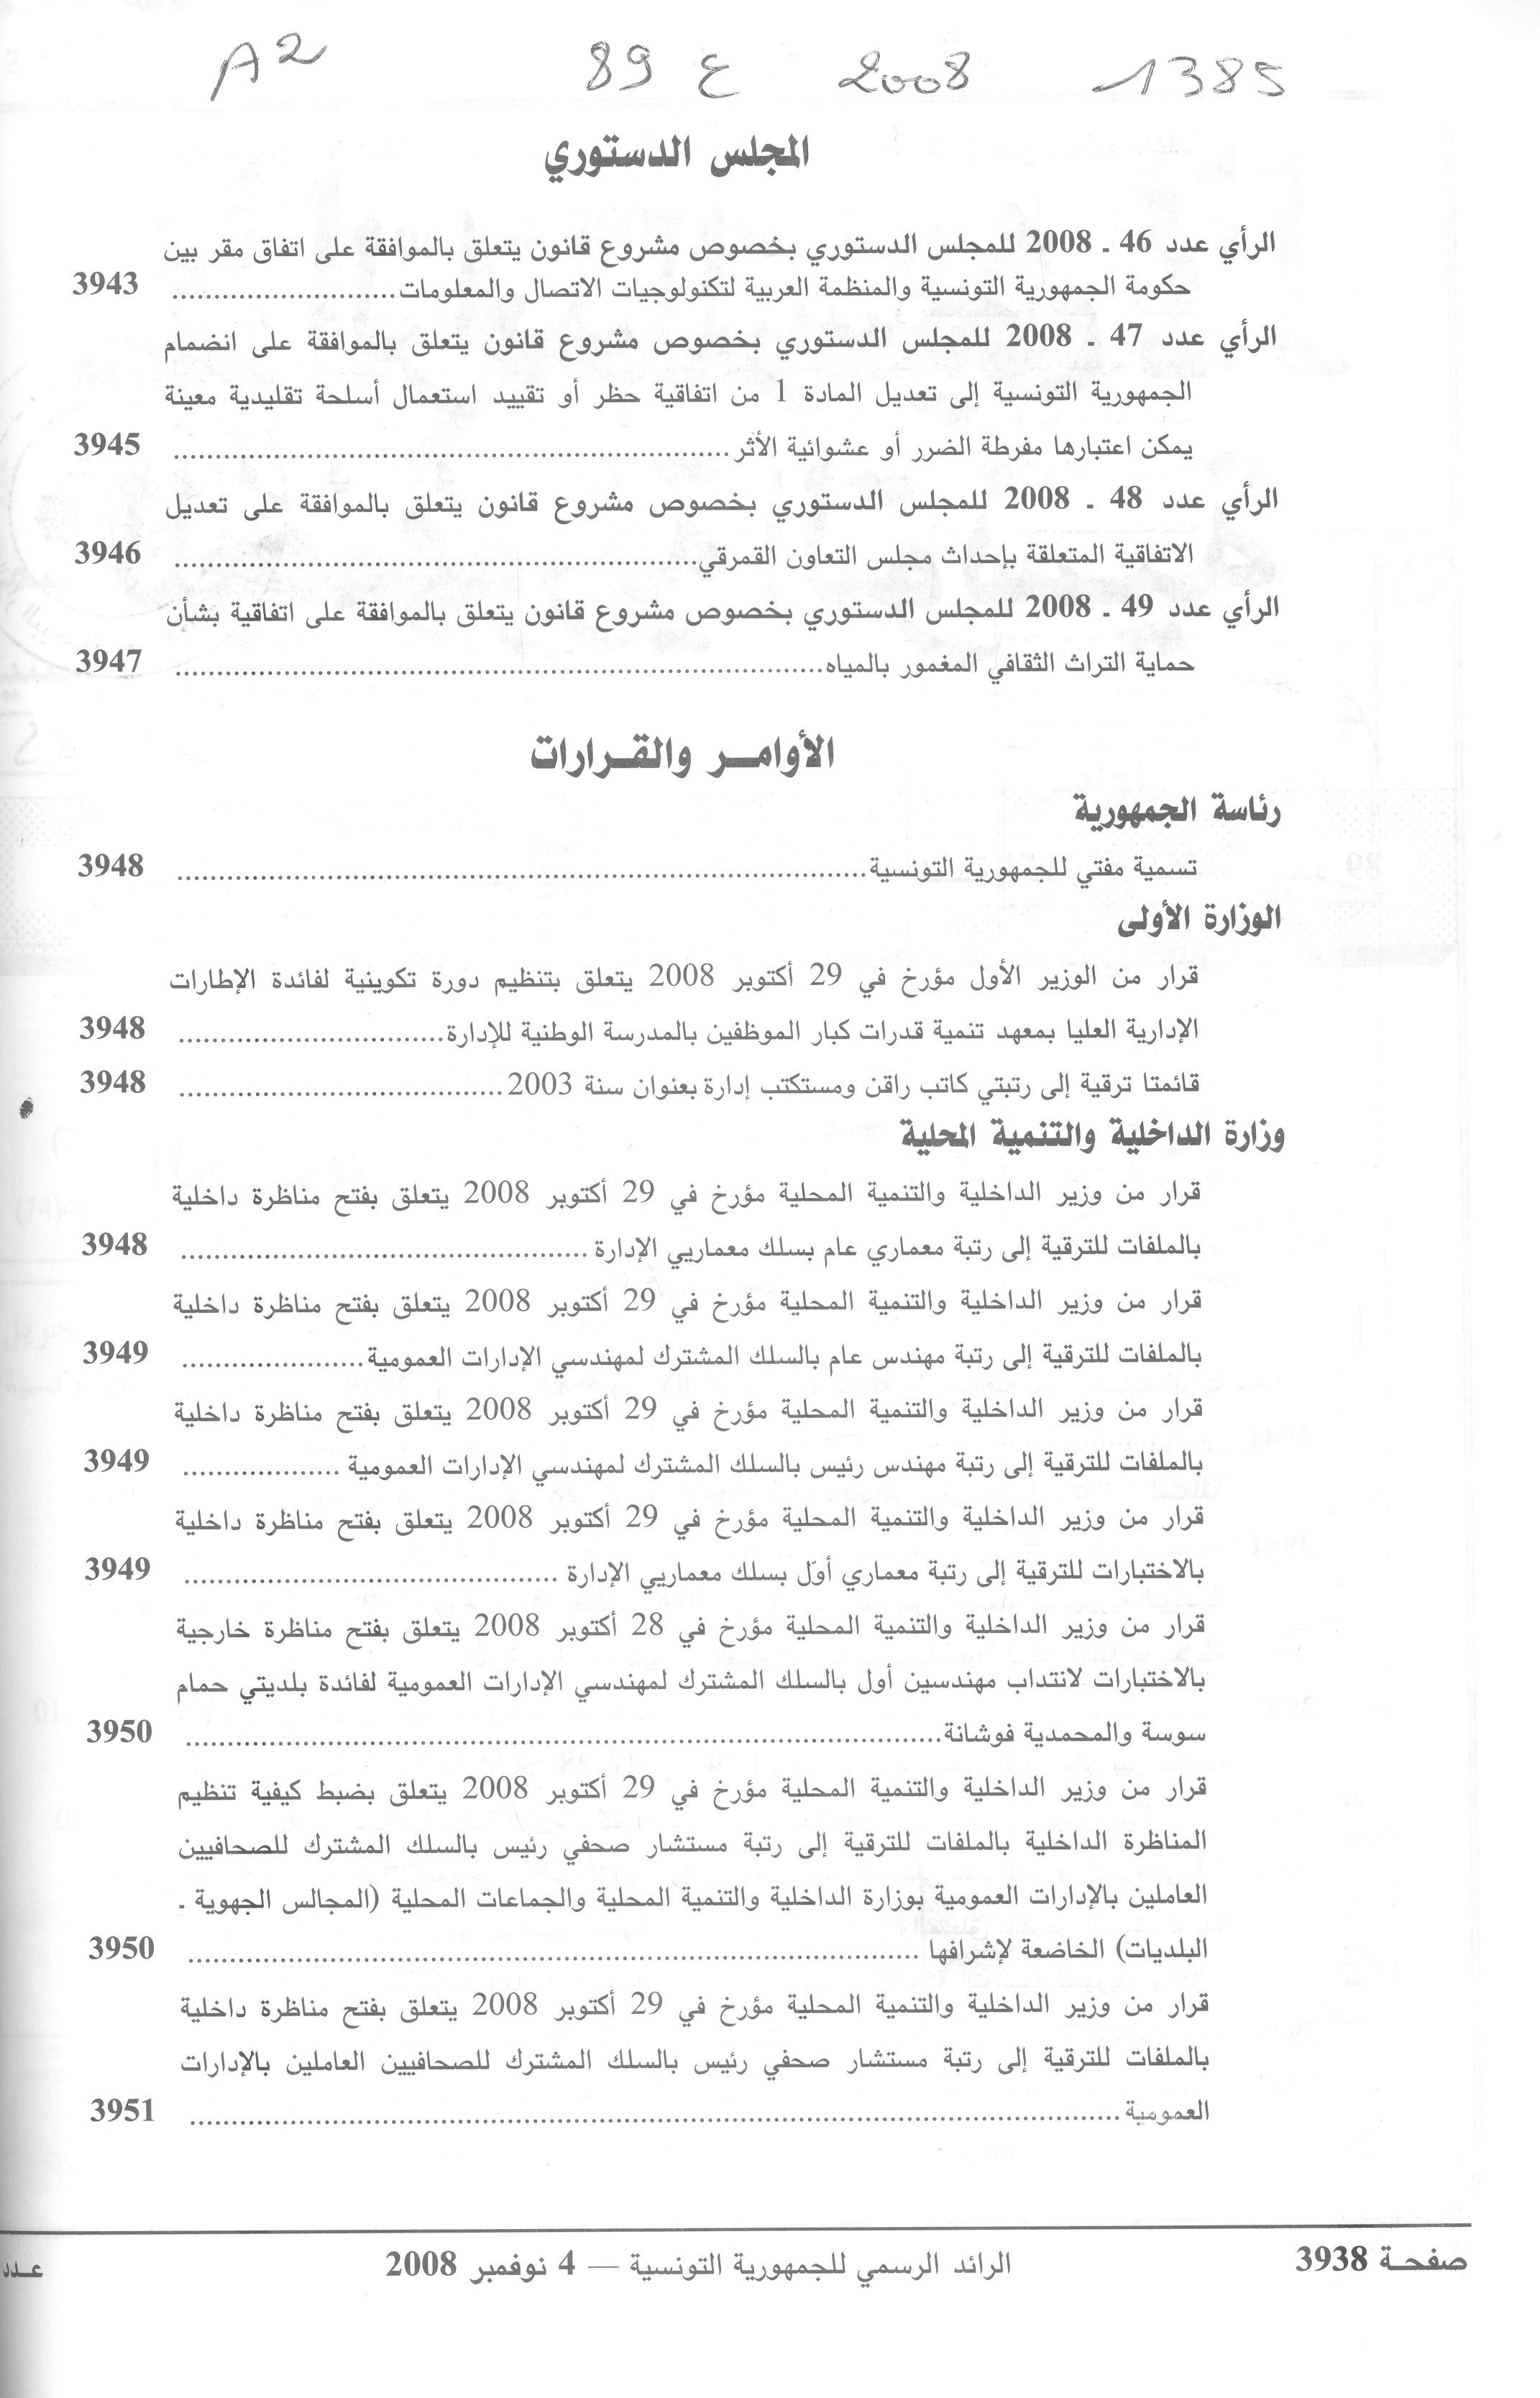 A2 89 ع 2008 1385
المجلس الدستوري
الرأي عدد 46 ـ 2008 للمجلس الدستوري بخصوص مشروع قانون يتعلق بالموافقة على اتفاق مقر بين
حكومة الجمهورية التونسية والمنظمة العربية لتكنولوجيات الاتصال والمعلومات........................... 3943
الرأي عدد 47 ـ 2008 للمجلس الدستوري بخصوص مشروع قانون يتعلق بالموافقة على انضمام
الجمهورية التونسية إلى تعديل المادة 1 من اتفاقية حظر أو تقييد استعمال أسلحة تقليدية معينة
يمكن اعتبارها مفرطة الضرر أو عشوائية الأثر................................................................... 3945
الرأي عدد 48 ـ 2008 للمجلس الدستوري بخصوص مشروع قانون يتعلق بالموافقة على تعديل
الاتفاقية المتعلقة بإحداث مجلس التعاون القمرقي............................................................... 3946
الرأي عدد 49 ـ 2008 للمجلس الدستوري بخصوص مشروع قانون يتعلق بالموافقة على اتفاقية بشأن
حماية التراث الثقافي المغمور بالمياه.............................................................................. 3947
الأوامــر والقــرارات
رئاسة الجمهورية
تسمية مفتي للجمهورية التونسية................................................................................... 3948
الوزارة الأولى
قرار من الوزير الأول مؤرخ في 29 أكتوبر 2008 يتعلق بتنظيم دورة تكوينية لفائدة الإطارات
الإدارية العليا بمعهد تنمية قدرات كبار الموظفين بالمدرسة الوطنية للإدارة................................ 3948
قائمتا ترقية إلى رتبتي كاتب راقن ومستكتب إدارة بعنوان سنة 2003....................................... 3948
وزارة الداخلية والتنمية المحلية
قرار من وزير الداخلية والتنمية المحلية مؤرخ في 29 أكتوبر 2008 يتعلق بفتح مناظرة داخلية
بالملفات للترقية إلى رتبة معماري عام بسلك معماريي الإدارة ................................................. 3948
قرار من وزير الداخلية والتنمية المحلية مؤرخ في 29 أكتوبر 2008 يتعلق بفتح مناظرة داخلية
بالملفات للترقية إلى رتبة مهندس عام بالسلك المشترك لمهندسي الإدارات العمومية...................... 3949
قرار من وزير الداخلية والتنمية المحلية مؤرخ في 29 أكتوبر 2008 يتعلق بفتح مناظرة داخلية
بالملفات للترقية إلى رتبة مهندس رئيس بالسلك المشترك لمهندسي الإدارات العمومية ................... 3949
قرار من وزير الداخلية والتنمية المحلية مؤرخ في 29 أكتوبر 2008 يتعلق بفتح مناظرة داخلية
بالاختبارات للترقية إلى رتبة معماري أوّل بسلك معماريي الإدارة ............................................. 3949
قرار من وزير الداخلية والتنمية المحلية مؤرخ في 28 أكتوبر 2008 يتعلق بفتح مناظرة خارجية
بالاختبارات لانتداب مهندسين أول بالسلك المشترك لمهندسي الإدارات العمومية لفائدة بلديتي حمام
سوسة والمحمدية فوشانة........................................................................................... 3950
قرار من وزير الداخلية والتنمية المحلية مؤرخ في 29 أكتوبر 2008 يتعلق بضبط كيفية تنظيم
المناظرة الداخلية بالملفات للترقية إلى رتبة مستشار صحفي رئيس بالسلك المشترك للصحافيين
العاملين بالإدارات العمومية بوزارة الداخلية والتنمية المحلية والجماعات المحلية (المجالس الجهوية ـ
البلديات) الخاضعة لإشرافها ........................................................................................ 3950
قرار من وزير الداخلية والتنمية المحلية مؤرخ في 29 أكتوبر 2008 يتعلق بفتح مناظرة داخلية
بالملفات للترقية إلى رتبة مستشار صحفي رئيس بالسلك المشترك للصحافيين العاملين بالإدارات
العمومية................................................................................................................ 3951
صفحـة 3938 الرائد الرسمي للجمهورية التونسية — 4 نوفمبر 2008 عـدد